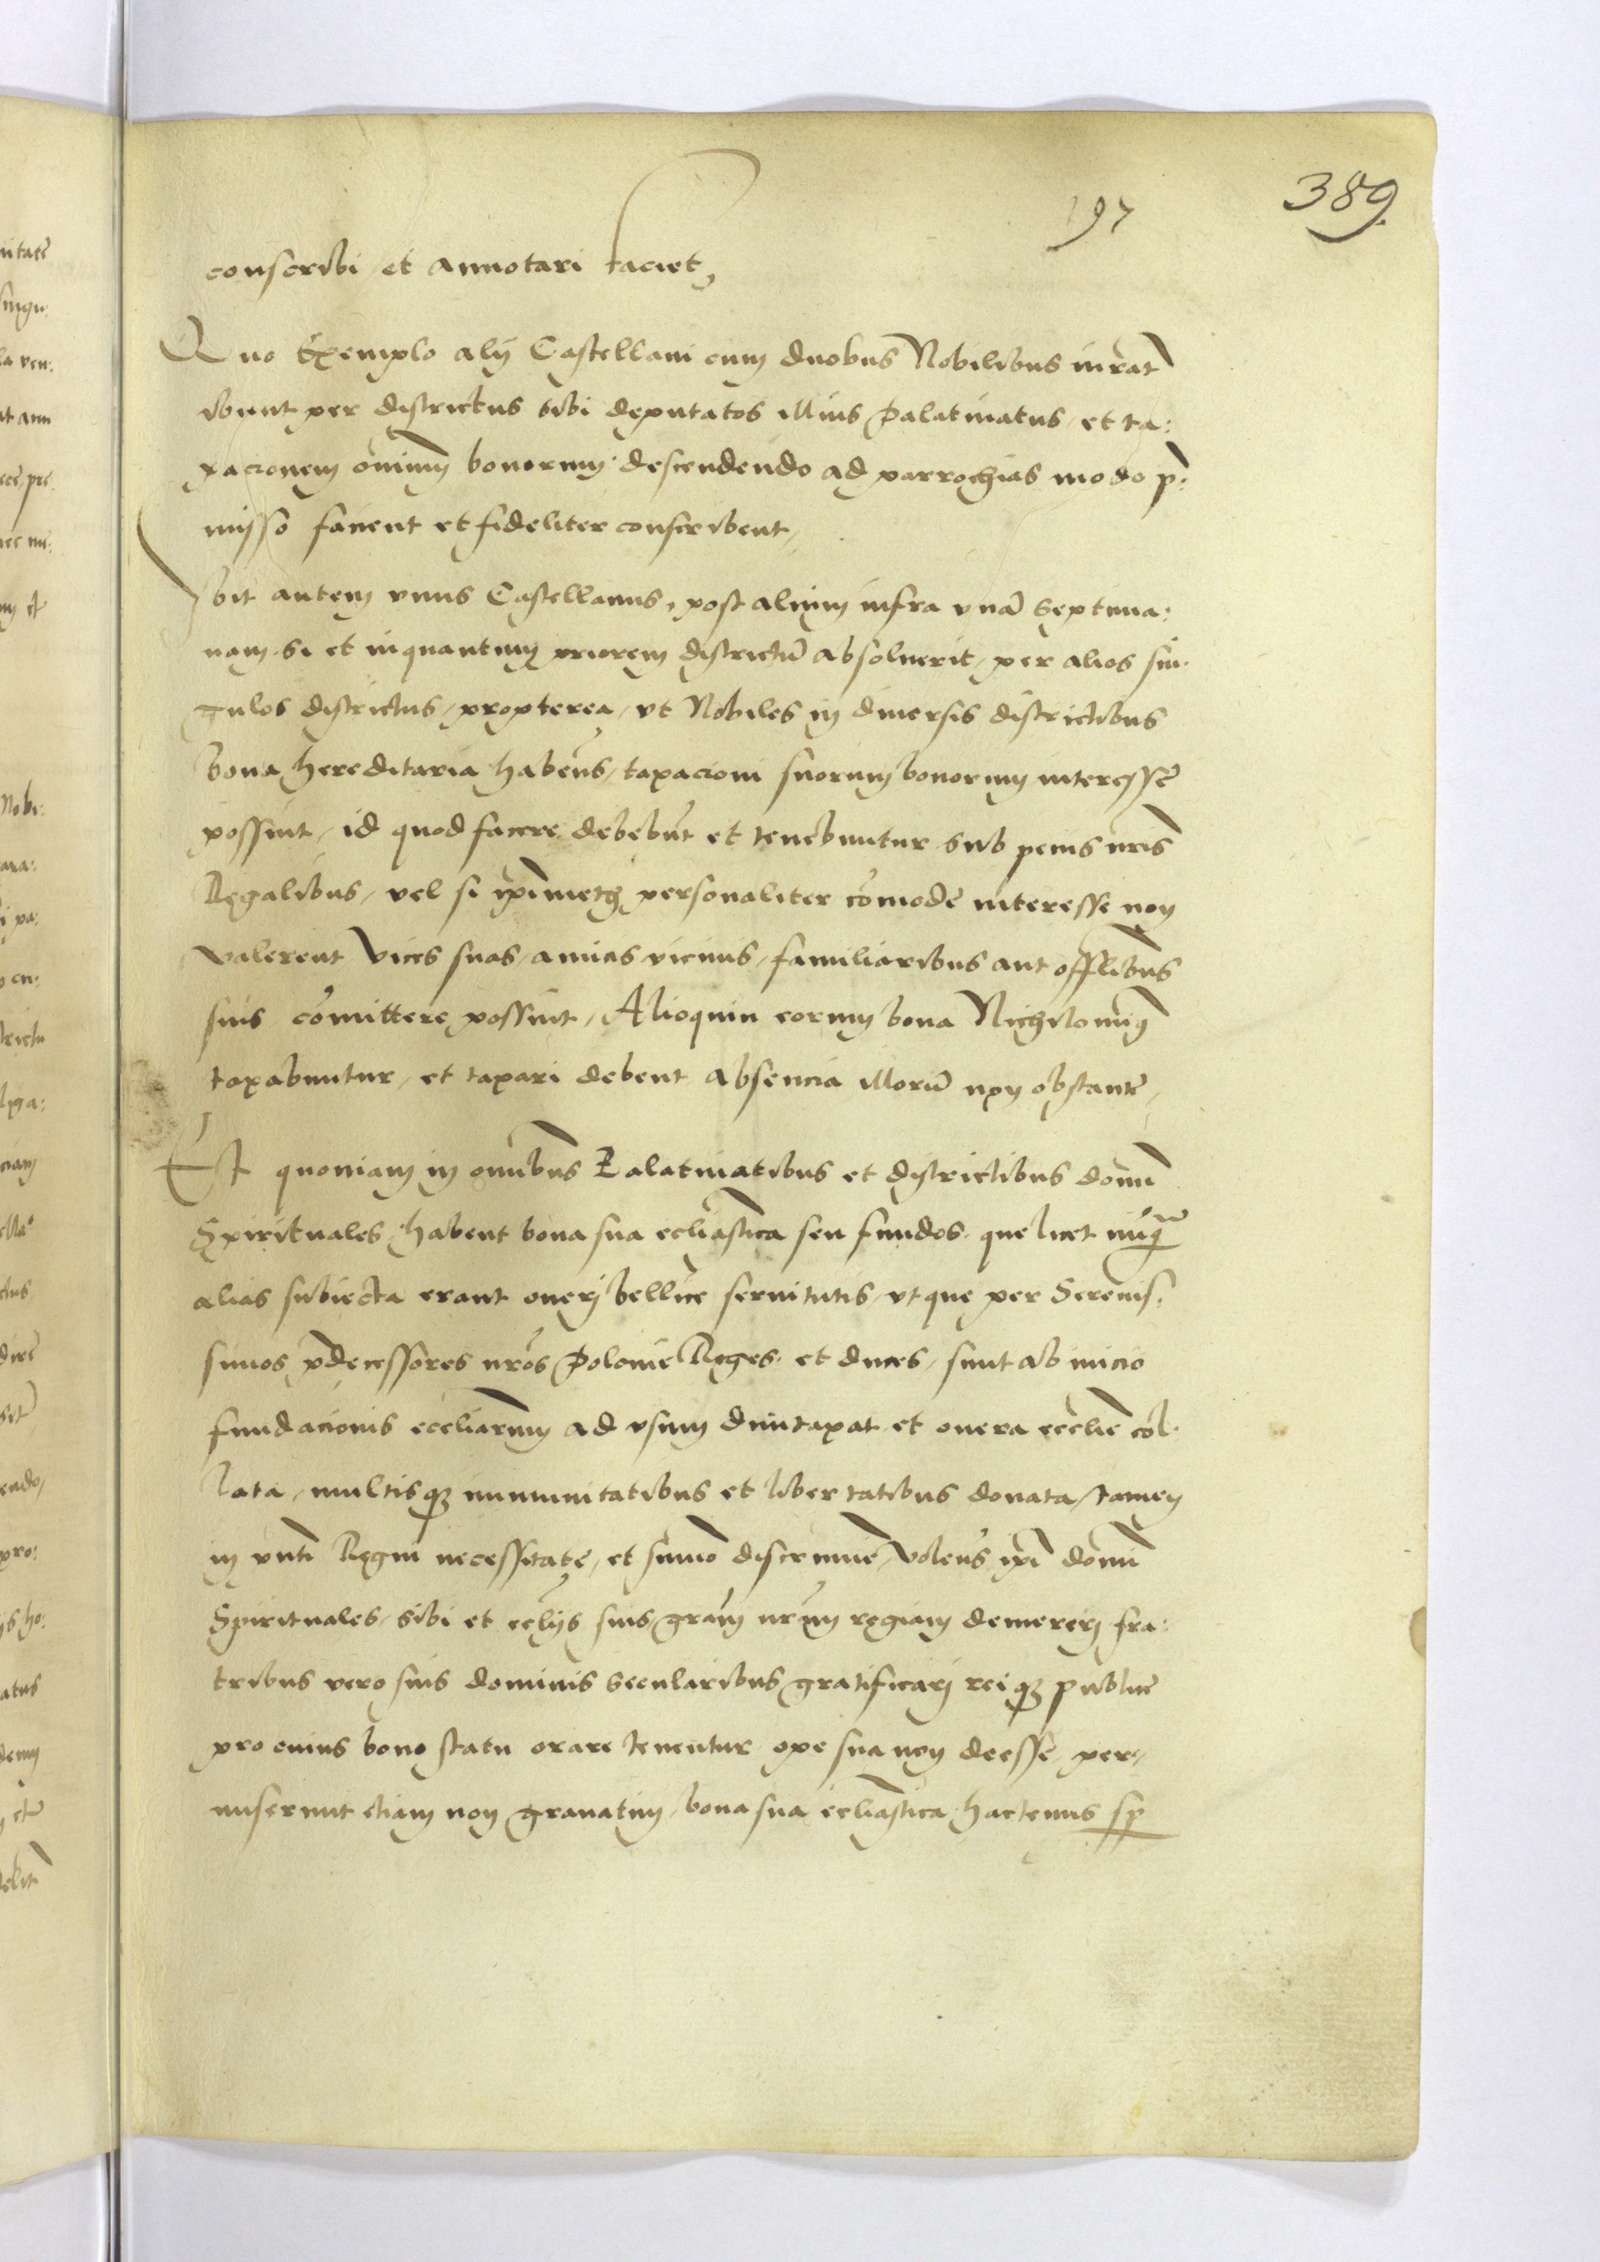 197
389.
conscribi et annotari faciet,
Quo Exemplo alij Castellani cum duobus Nobilibus iurat
ibunt per districtus sibi deputatos illius Palatinatus, et ta:
xacionem om̄nium bonorum descendendo ad parrochias modo p̄:
misso facient et fideliter conscribent,
Ibit autem vnus Castellanus, post alium infra vnā septima:
nam, si et inquantum priorem districtū absoluerit, per alios sin:
gulos districtus, propterea, vt Nobiles in diuersis districtibus
bona hereditaria habēns, taxacioni suorum bonorum interesse
possint, id quod facere debebūt et tenebuntur sub penis nr̄is
Regalibus, vel si ip̄imetʒ personaliter cōmode interesse non
valerent vices suas, amicis vicinis, familiaribus aut offi̅libus
suis cōmittere possint, Alioquin eorum bona Nichilominꝰ
taxabuntur, et taxari debent absencia illorū non obstante,
Et quoniam in om̄nibus Palatinatibus et districtibus domī
Spirituales habent bona sua eccliastica seu fundos, que licet nūqꝫ
alias subiecta erant oneri bellice seruitutis, vt que per Serenis:
simos p̄decessores nr̄os Polonie Reges et duces, sunt ab inicio
fundacionis eccliarum ad vsum duntaxat et onera ecclie col:
lata, multisqꝫ immunitatibus et libertatibus donata, tamen
in vn̄ti Regni necessitate, et sūmo discrimine, volens ip̄i domī
Spirituales, sibi et eccl̄ijs suis grām nr̄am regiam demereri fra:
tribus vero suis dominis secularibus gratificari reiqꝫ publice
pro cuius bono statu orare tenentur ope sua non deesse, per,
miserunt etiam non grauatim, bona sua eccliastica hactenus sp̄